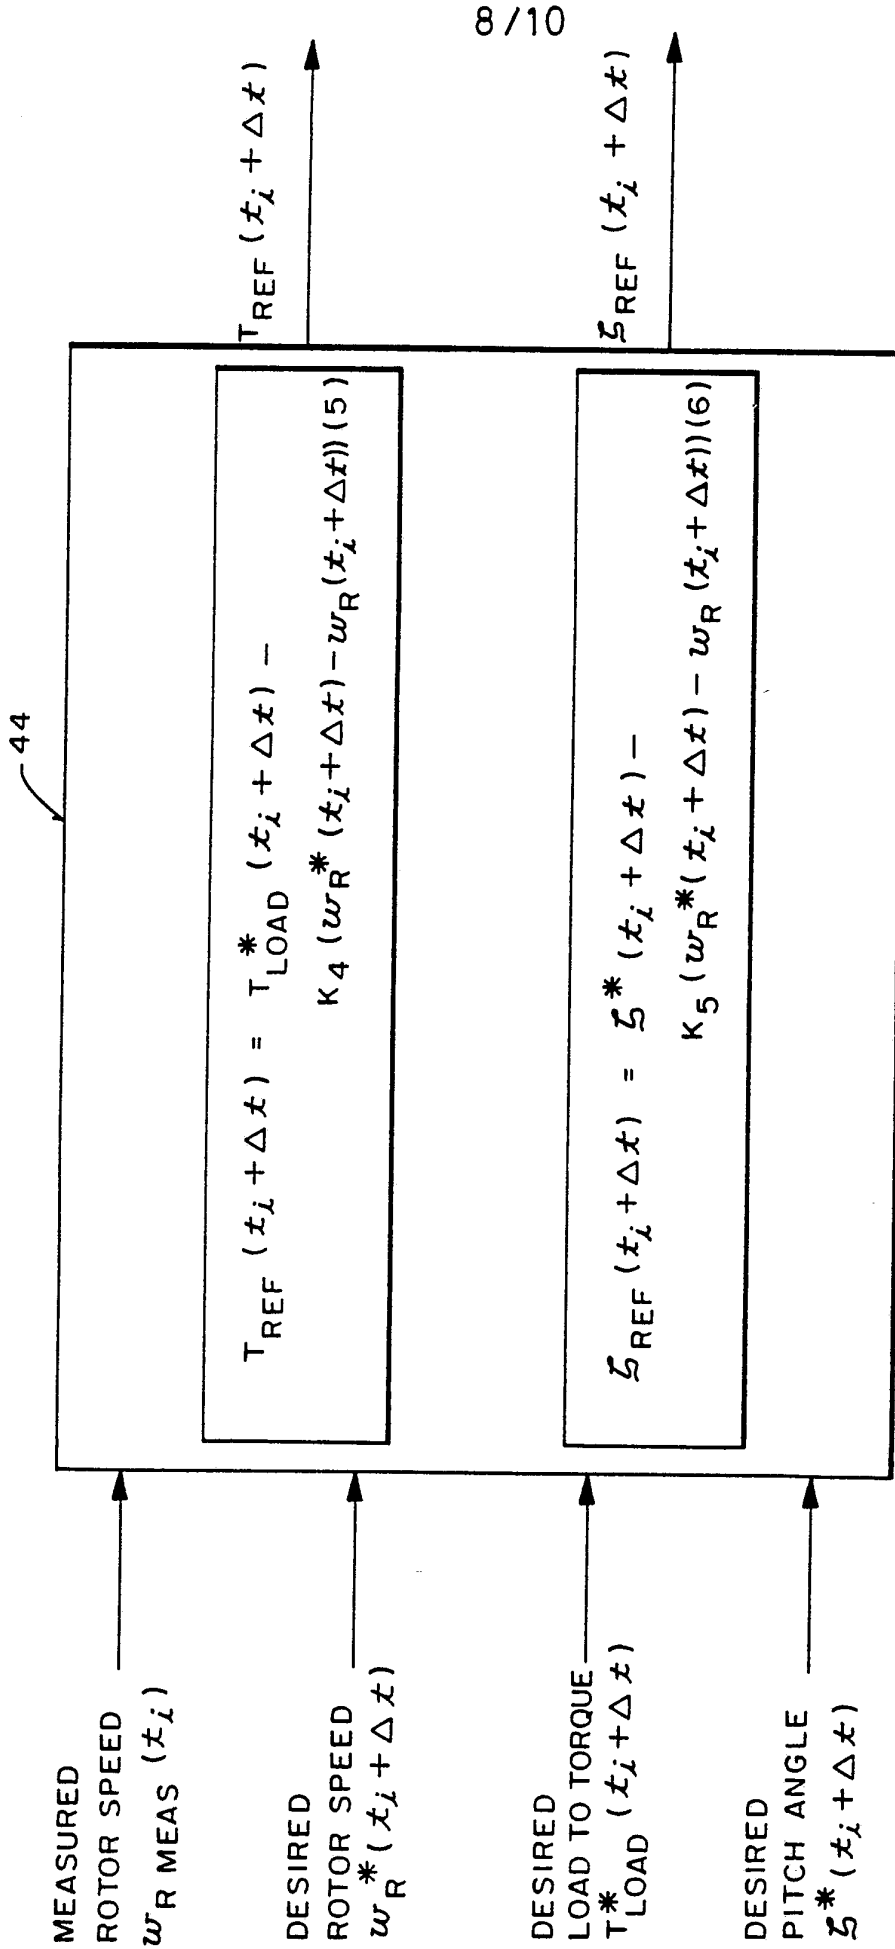 8/10
44
MEASURED
ROTOR SPEED
w_R MEAS (t_i)
DESIRED
ROTOR SPEED
w_R^* (t_i + Δt)
DESIRED
LOAD TO TORQUE
T_LOAD^* (t_i + Δt)
DESIRED
PITCH ANGLE
ζ^* (t_i + Δt)
T_REF (t_i + Δt) = T_LOAD^* (t_i + Δt) −
K_4 (w_R^* (t_i + Δt) − w_R (t_i + Δt)) (5)
ζ_REF (t_i + Δt) = ζ^* (t_i + Δt) −
K_5 (w_R^* (t_i + Δt) − w_R (t_i + Δt)) (6)
T_REF (t_i + Δt)
ζ_REF (t_i + Δt)